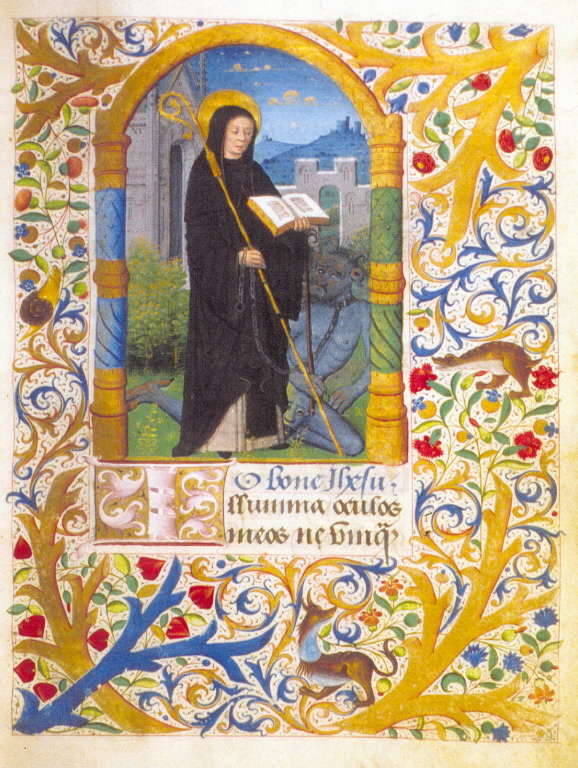 O bone Jhesu.
Illumina oculos
meos ne vmq̃